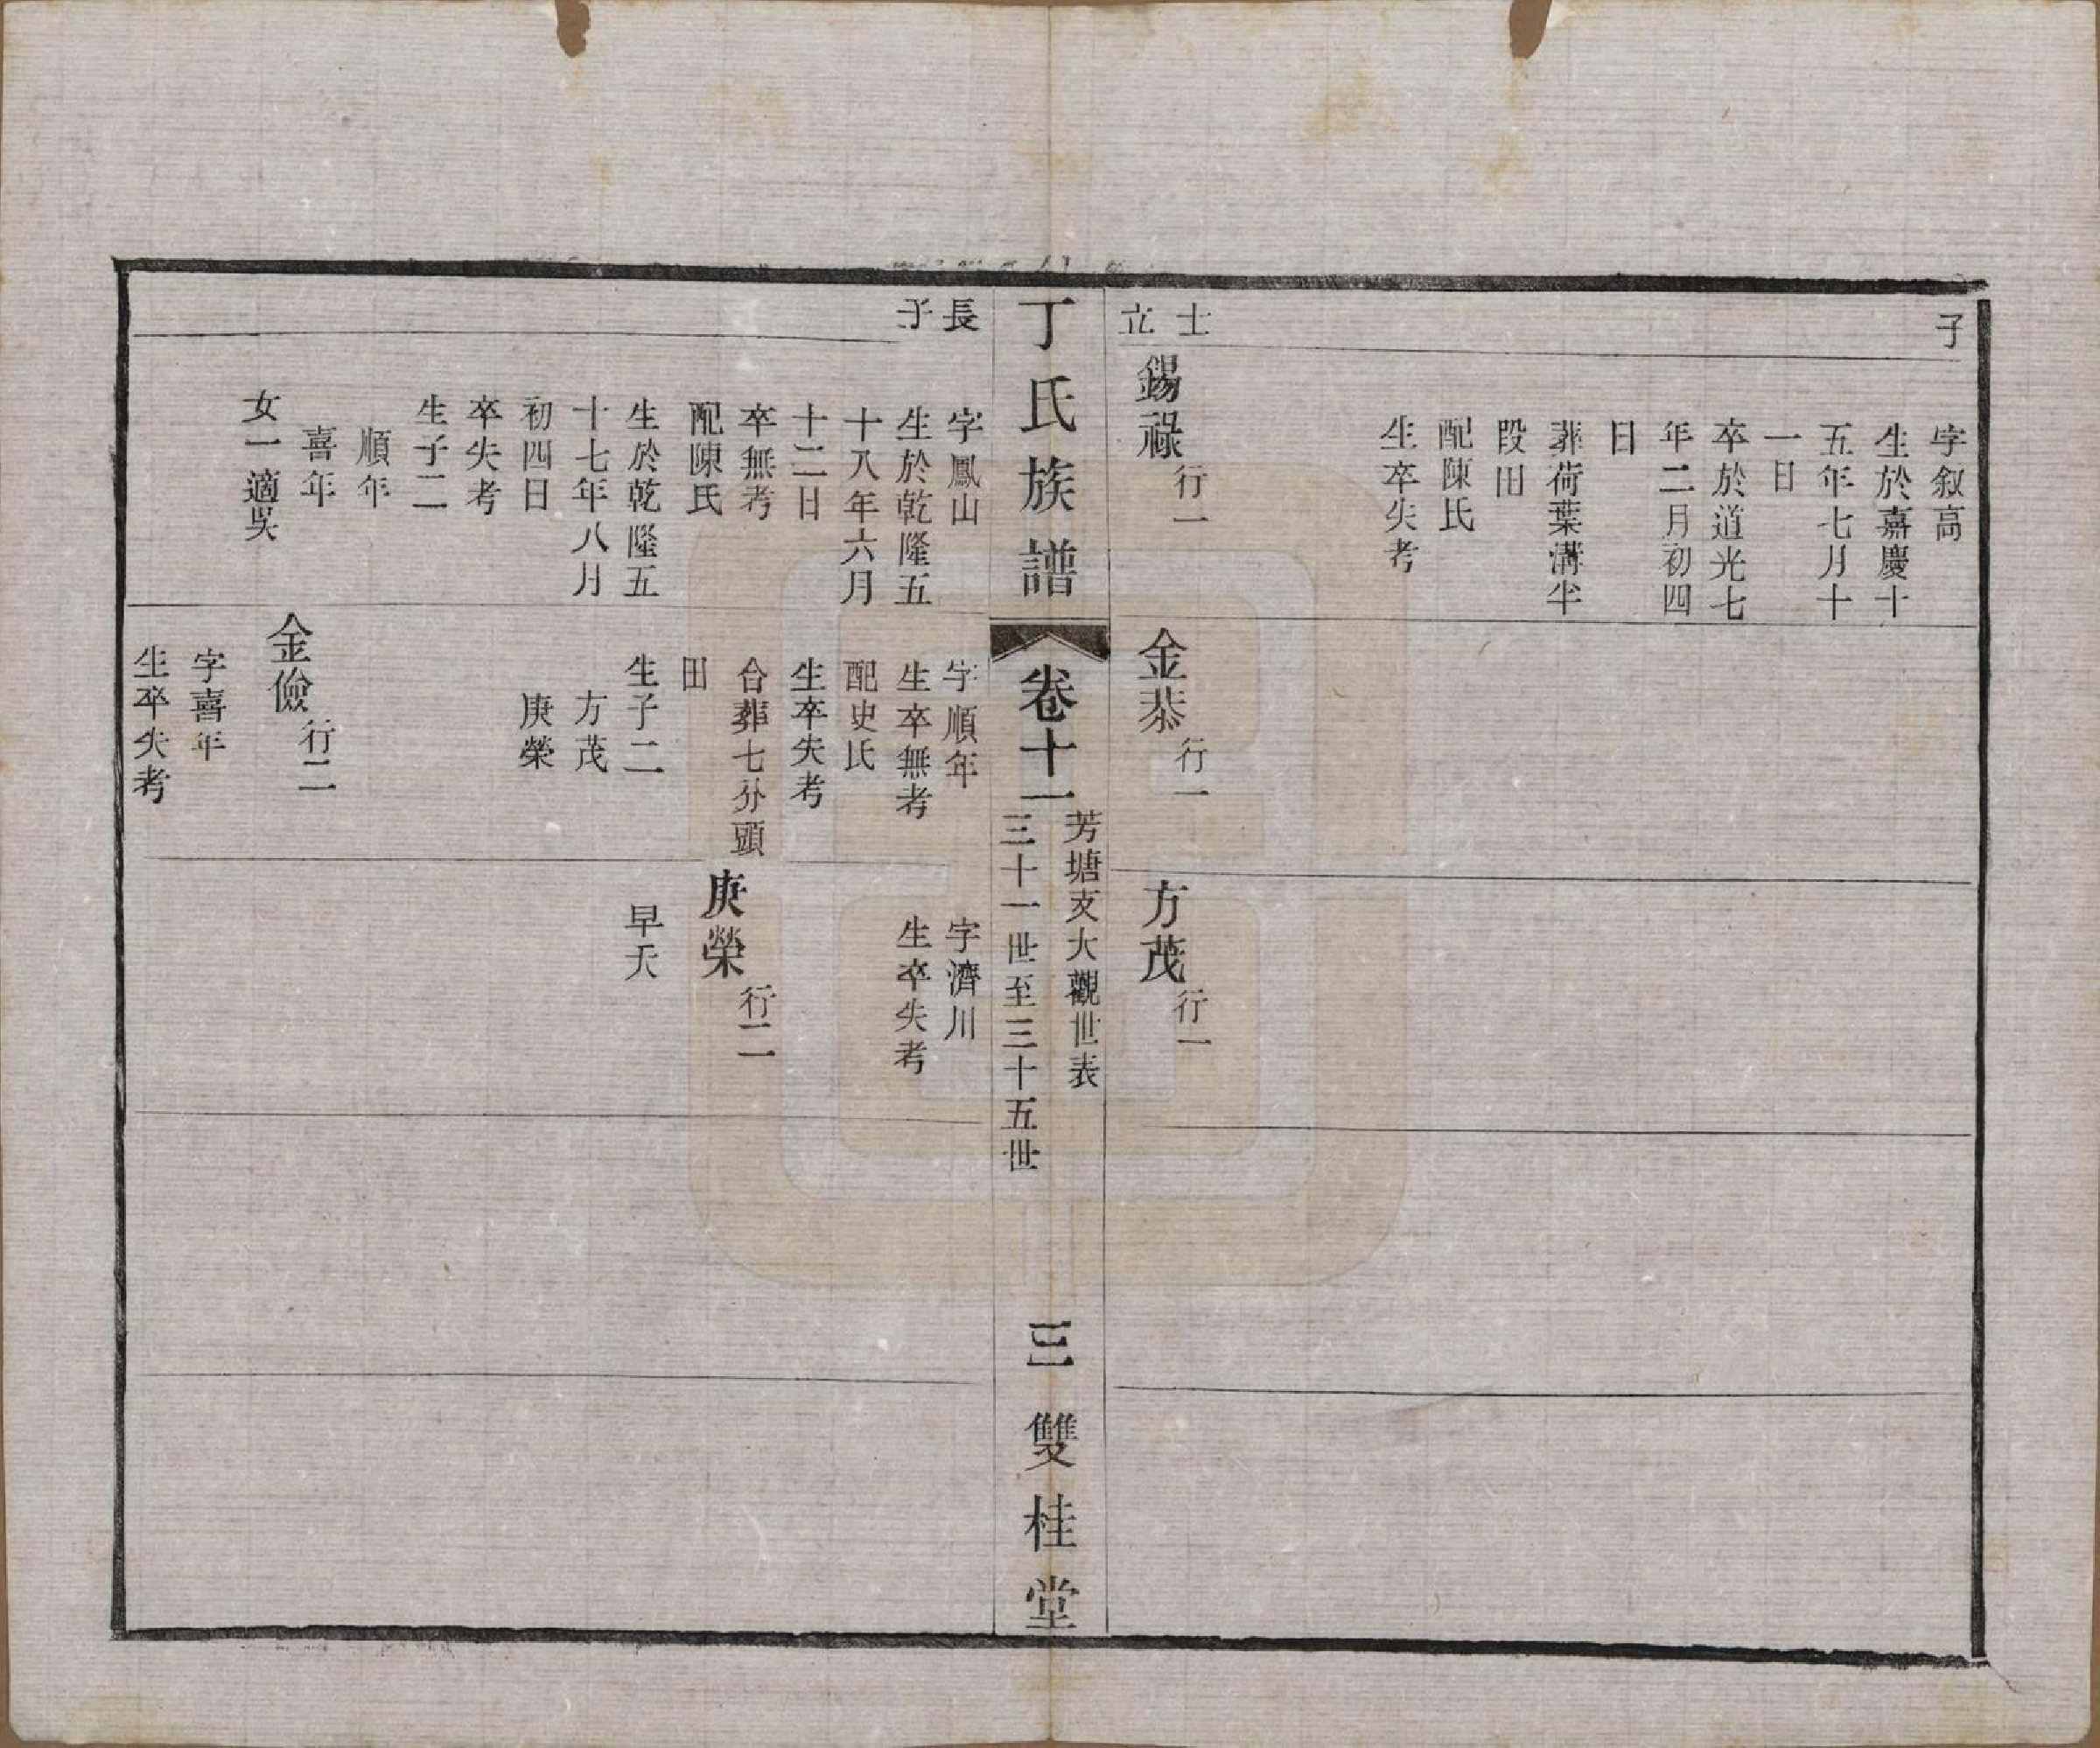 子
字叙高
生於嘉慶十
五年七月十
一日
卒於道光七
年二月初四
日
葬荷葉溝半
段田
配陳氏
生卒失考
士
立
錫祿行一
金恭行一
方茂行一
丁氏族譜
卷十一
芳塘支大觀世表
三十一世至三十五世
三
雙桂堂
長
子
字鳳山
生於乾隆五
十八年六月
十二日
卒無考
配陳氏
生於乾隆五
十七年八月
初四日
卒失考
生子二
順年
喜年
女一適吳
字順年
生卒無考
配史氏
生卒失考
合葬七分頭
田
生子二
方茂
庚榮
金儉行二
字喜年
生卒失考
字濟川
生卒失考
庚榮行二
早夭